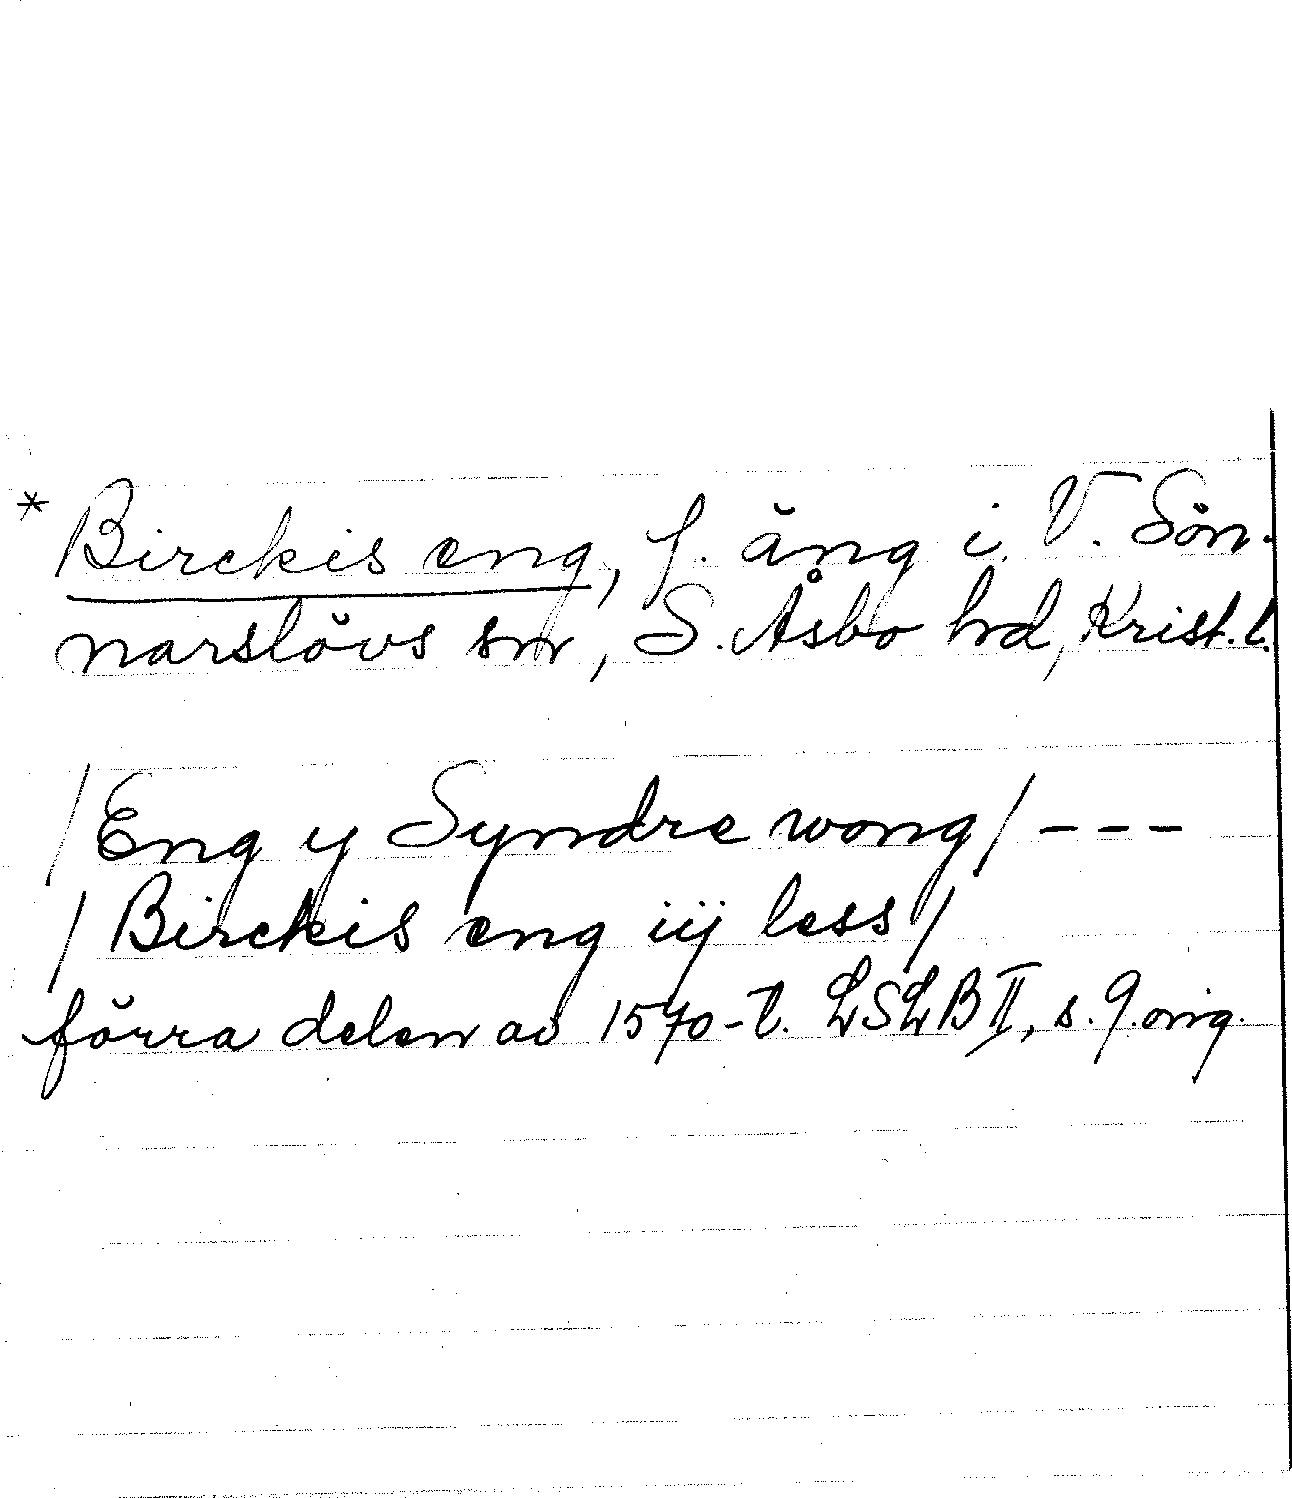 * Birckis eng, f. äng i V. Sön-
narslövs sn, S. Åsbo hd, Krist. l.
/Eng y Syndre wong/ ---
/Birckis eng iij less/
förra delen av 1570-t. LSLB II, s. 9. orig.